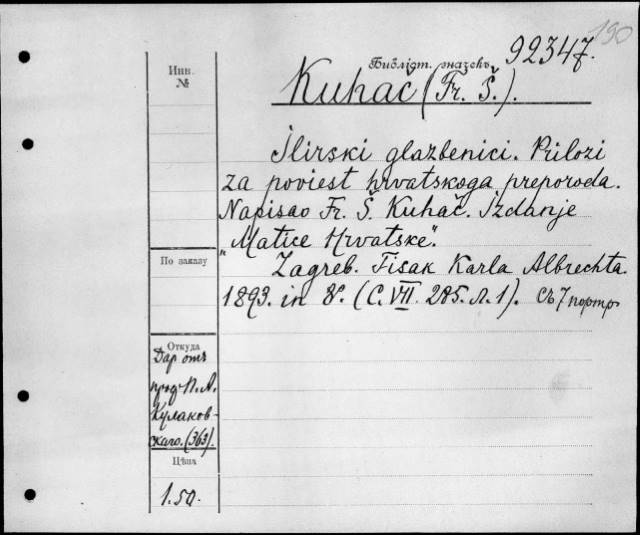 190
92347.
Инв.
№
Библіот. значекъ
Kuhač (Fr. Š.).
Ilirski glazbenici. Prilozi
za poviest hrvatskoga preporoda.
Napisao Fr. Š. Kuhač. Izdanje
„Matice Hrvatske".
По заказу
Zagreb. Tisak Karla Albrechta.
1893. in 8º. (C. VII. 285. л. 1). съ 7 портр.
Откуда
Дар отъ
проф. П. А.
Кулаков-
скаго. (363).
Цѣна
1.50.